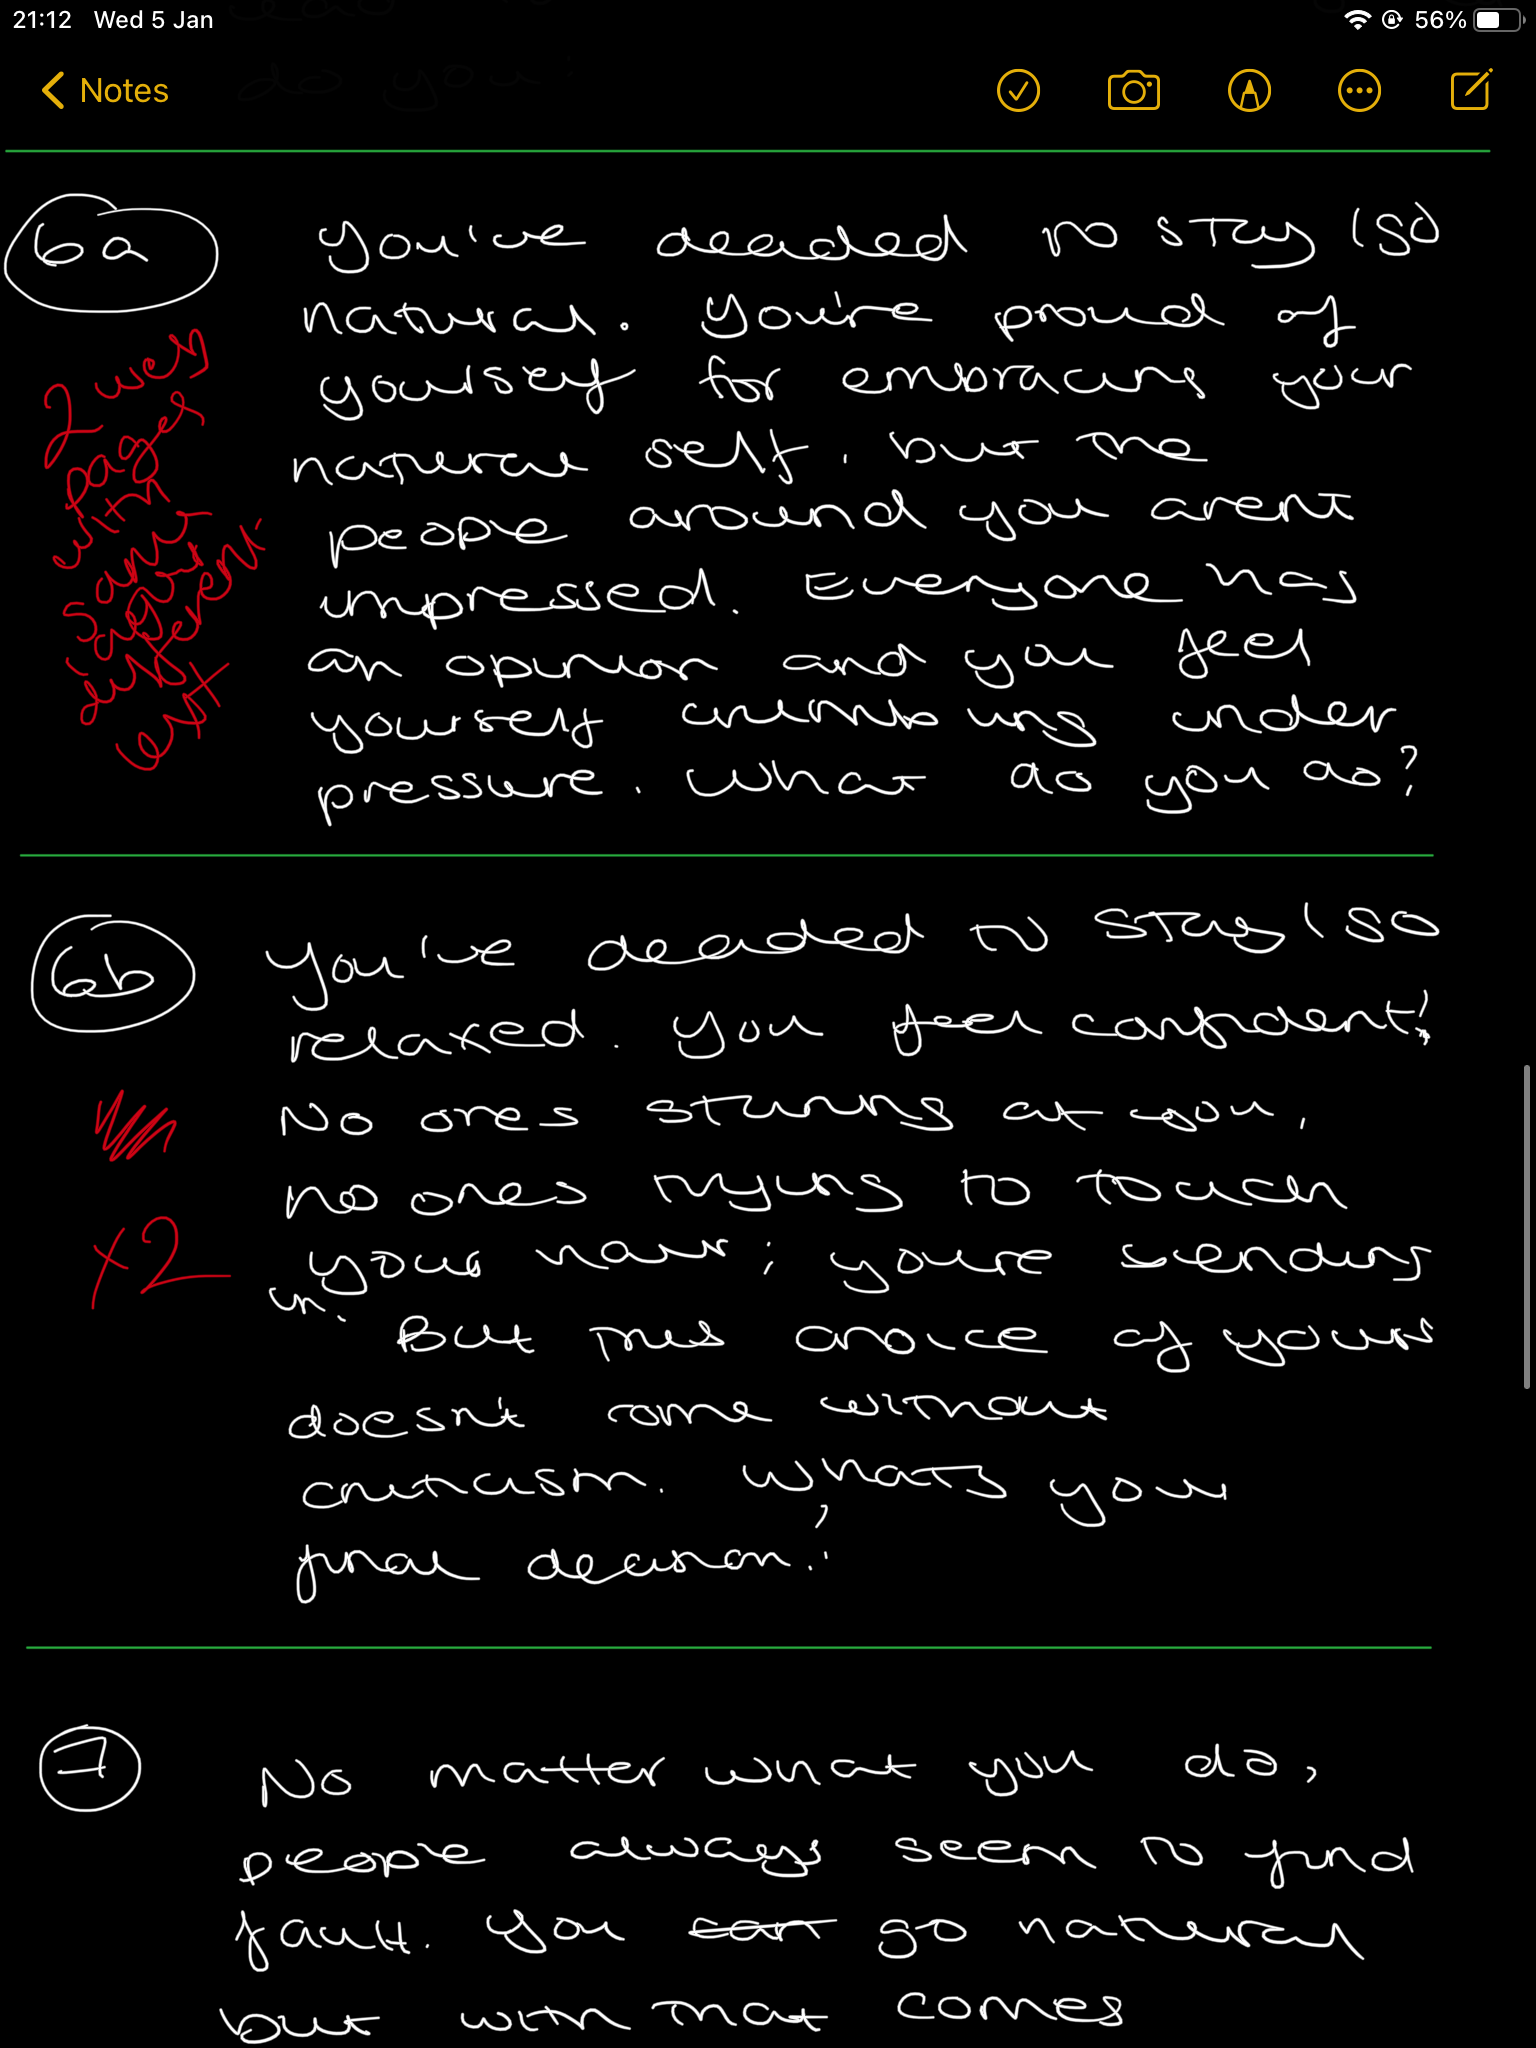 21:12 Wed 5 Jan 56%
Notes
6a
You've decided to stay (so)
natural. You're proud of
yourself for embracing your
natural self, but the
people around you arent
impressed. Everyone has
an opinion and you feel
yourself crumbling under
pressure. What do you do?
2 web
pages
with
same
layout
different
text
6b
You've decided to stay / so
relaxed. You feel confident!
No ones staring at you,
no ones trying to touch
your hair; youre blending
in. But this choice of yours
doesn't come without
criticism. What's your
final decision?
x2
7
No matter what you do,
people always seem to find
fault. You can go natural
but with that comes